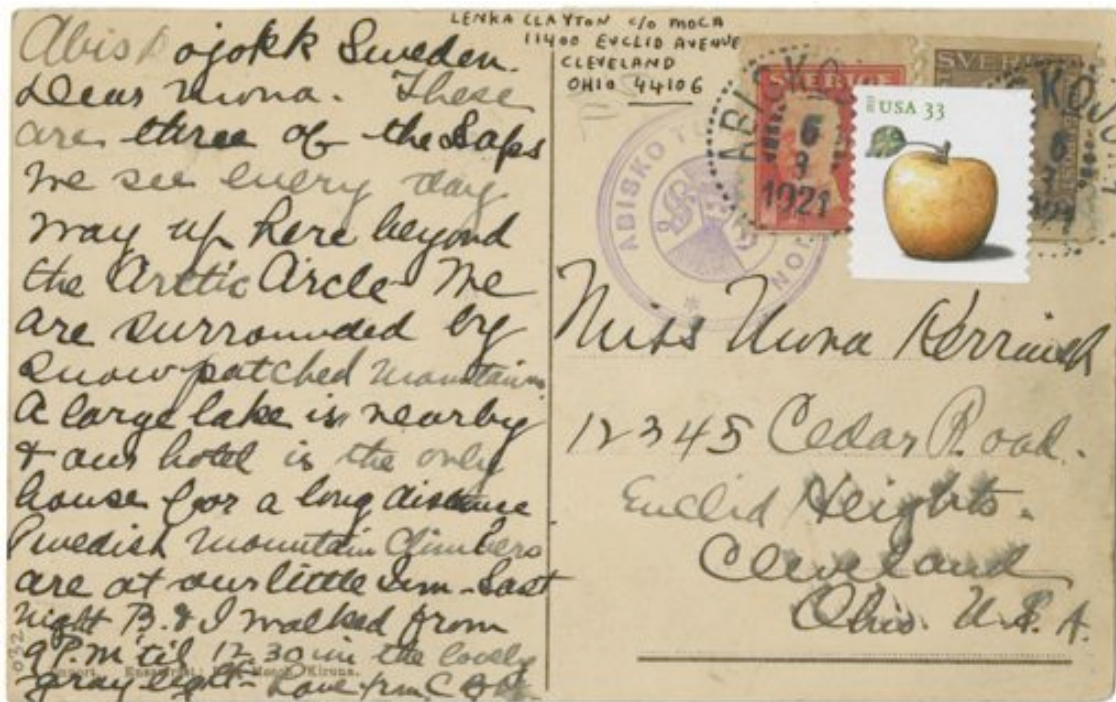 Abiskojokk Sweden.
Dear Mona. These
are three of the Laps
we see every day
way up here beyond
the Arctic Circle We
are surrounded by
snow patched mountains
A large lake is nearby
& our hotel is the only
house for a long distance
Swedish Mountain Climbers
are at our little Inn - Last
night B. & I walked from
9 P.M 'til 12.30 in the lovely
gray light - Love from C B
032
Kiruna.
LENKA CLAYTON c/o MOCA
11400 EUCLID AVENUE
CLEVELAND
OHIO 44106
SVERIGE
SVERIGE
ABISKO
6
3
1921
USA 33
ABISKO
Miss Mona
12345 Cedar Road.
Euclid Heights.
Cleveland
Ohio. U.S.A.